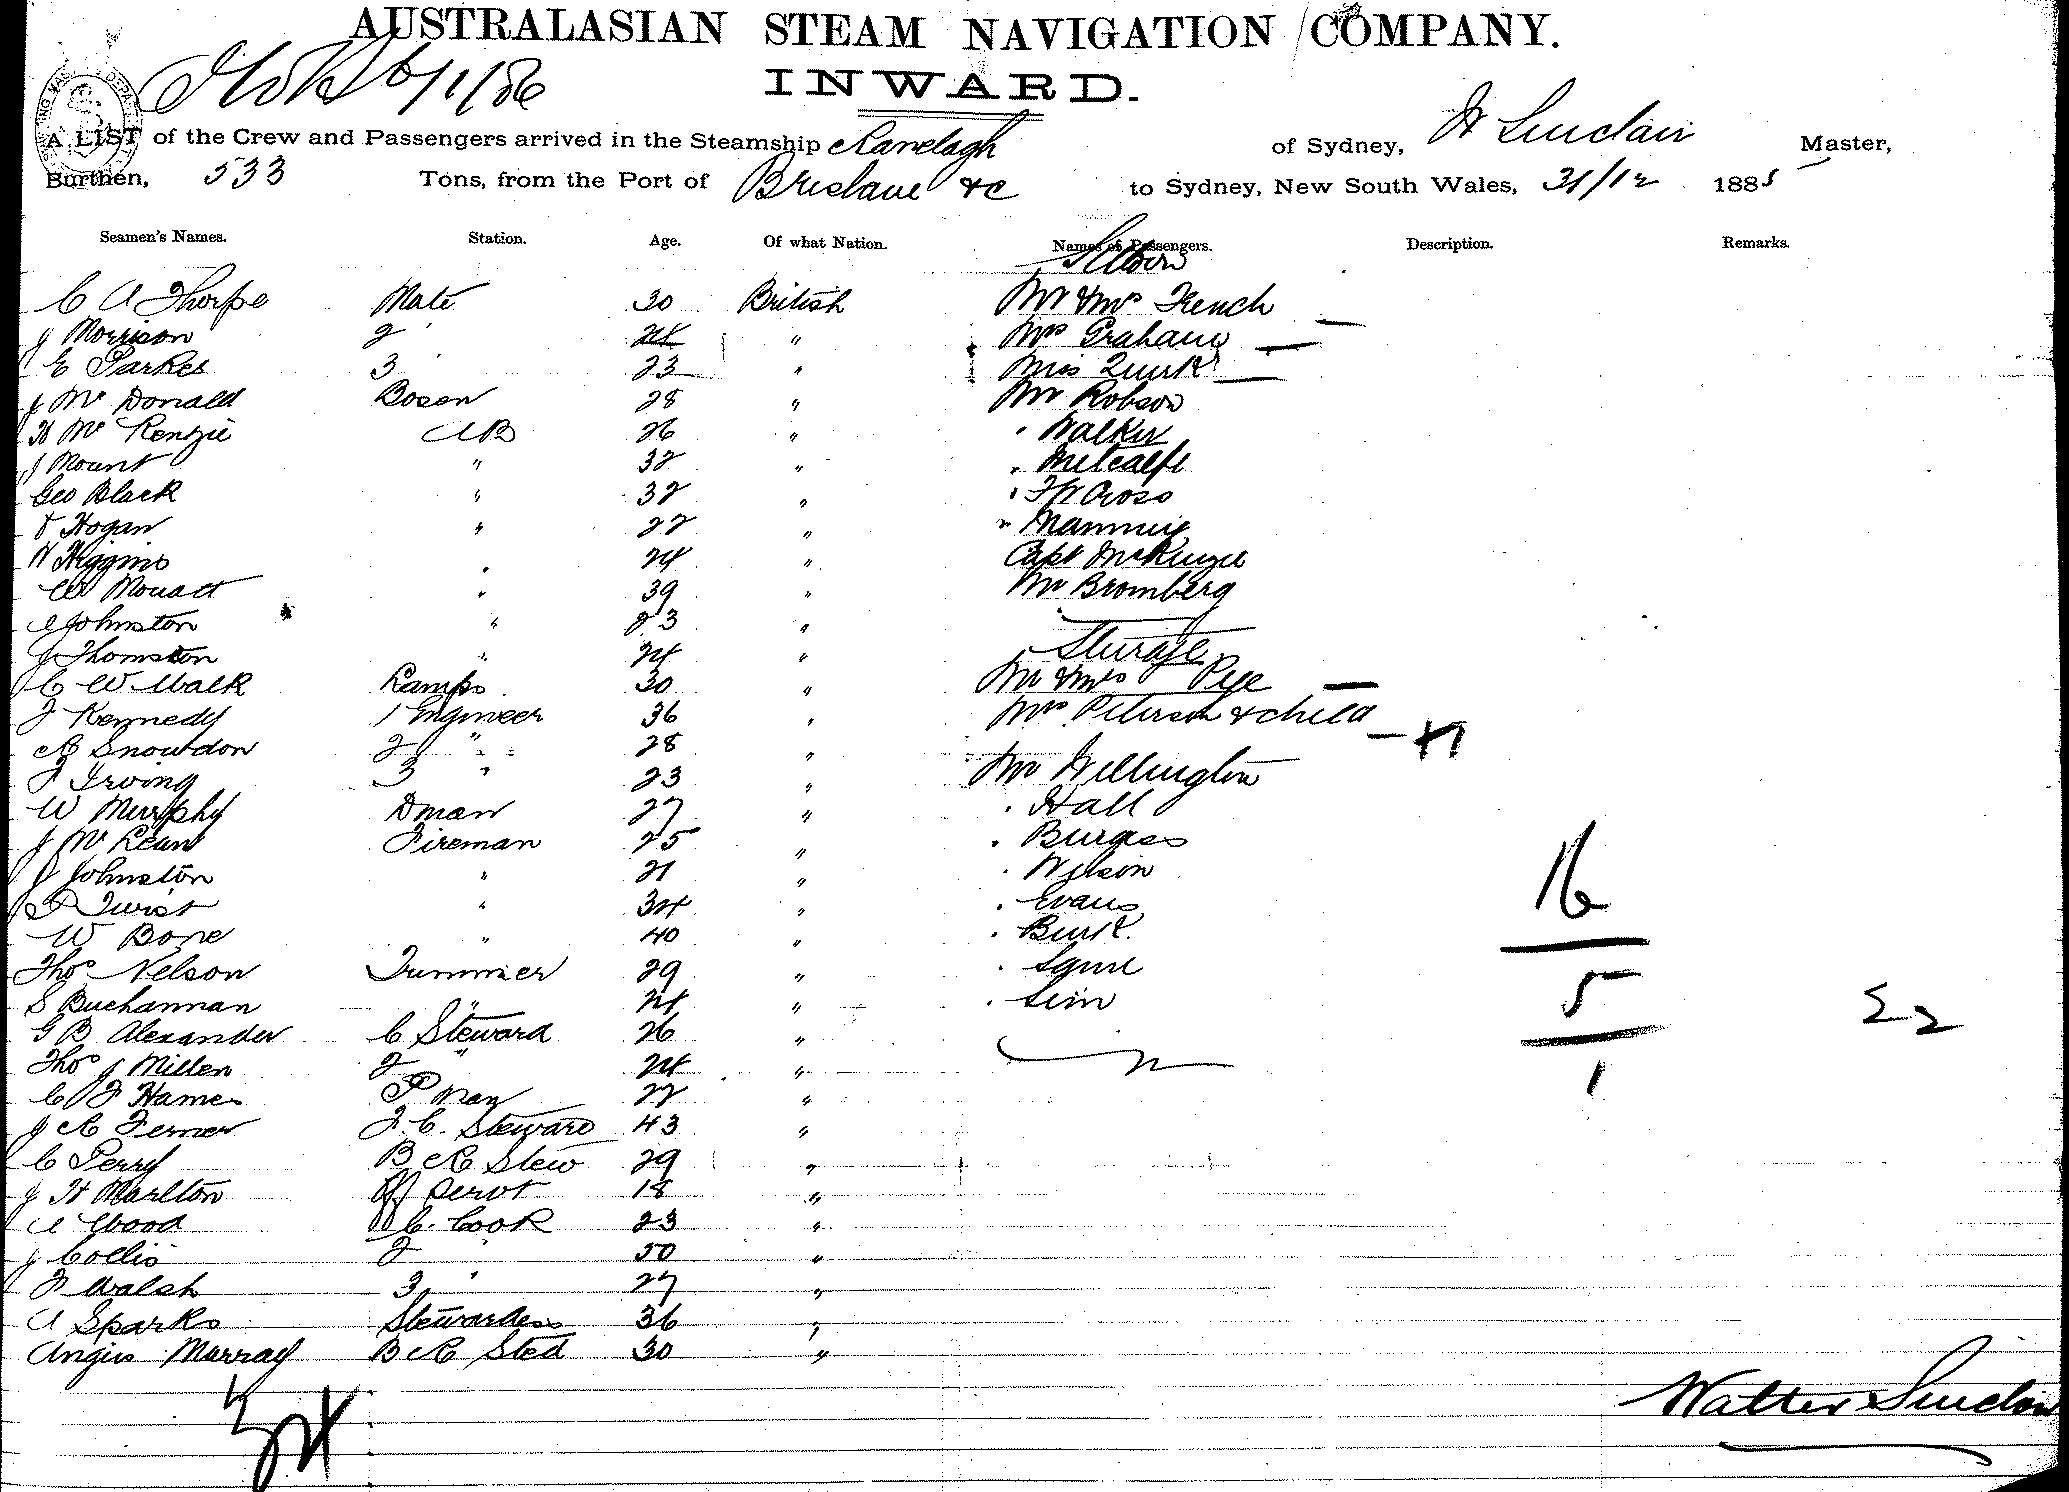 AUSTRALASIAN STEAM NAVIGATION COMPANY.
6/1/86
INWARD.
A LIST of the Crew and Passengers arrived in the Steamship Ranelagh of Sydney, W Sinclair Master,
Burthen, 533 Tons, from the Port of Brisbane &c to Sydney, New South Wales, 31/12 1885
Seamen's Names. Station. Age. Of what Nation. Names of Passengers. Description. Remarks.
Saloon
C A Thorpe Mate 30 British Mr & Mrs French
J Morrison 2 " 24 " Mrs Graham
E Parkes 3 " 23 " Miss Quirk
J Mc Donald Bosen 28 " Mr Robson
H Mc Kenzie AB 26 " " Walker
J Mount " 32 " " Metcalfe
Geo Black " 32 " " F W Cross
T Hogan " 22 " "
H Higgins " 24 " Capt McKenzie
W Mouatt " 39 " Mr Bromberg
A Johnston " 23 "
J Thomston " 24 " Sturage
C W Walk Lamps 30 " Mr & Mrs Pye
J Kennedy 1 Engineer 36 " Mrs Peterson & child
A Snowdon 2 " 28 "
J Irving 3 " 23 " Mr Wellington
W Murphy Dman 27 " " Hall
J Mc Lean Fireman 25 " " Burgess
J Johnston " 21 " " Wilson
P Twist " 34 " " Evans
W Bone " 40 " " Burk
Thos Nelson Trimmer 29 "
S Buchannan " 24 " " Sim
G B Alexander C Steward 26 "
Thos J Millen 2 " 24 "
C F Hames P man 22 "
J A Ferner F. C. Steward 43 "
C Perry B & C Stew 29 "
J H Marlton Servt 18 "
A Wood C. Cook 23 "
J Collis 2 " 50 "
F Walsh 3 " 27 "
A Sparks Stewardess 36 "
Angus Murray B & C Sted 30 "
16
5
1
22
34
Walter Sinclair